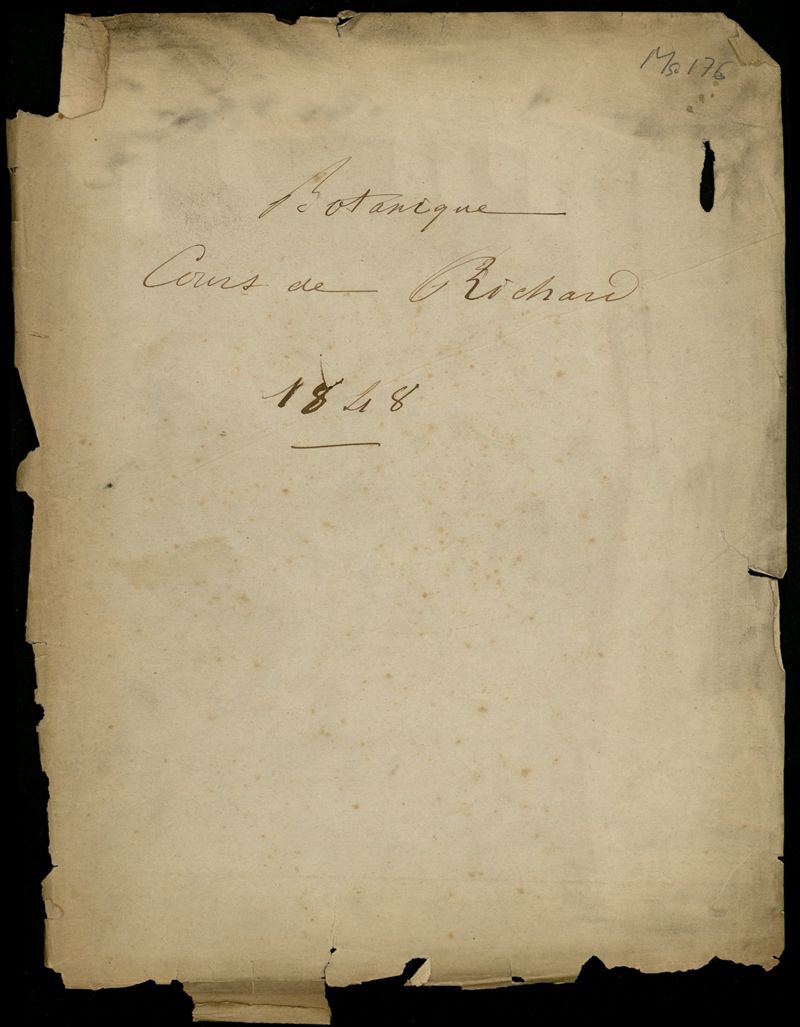 Ms 176
Botanique
Cours de Richard
1848